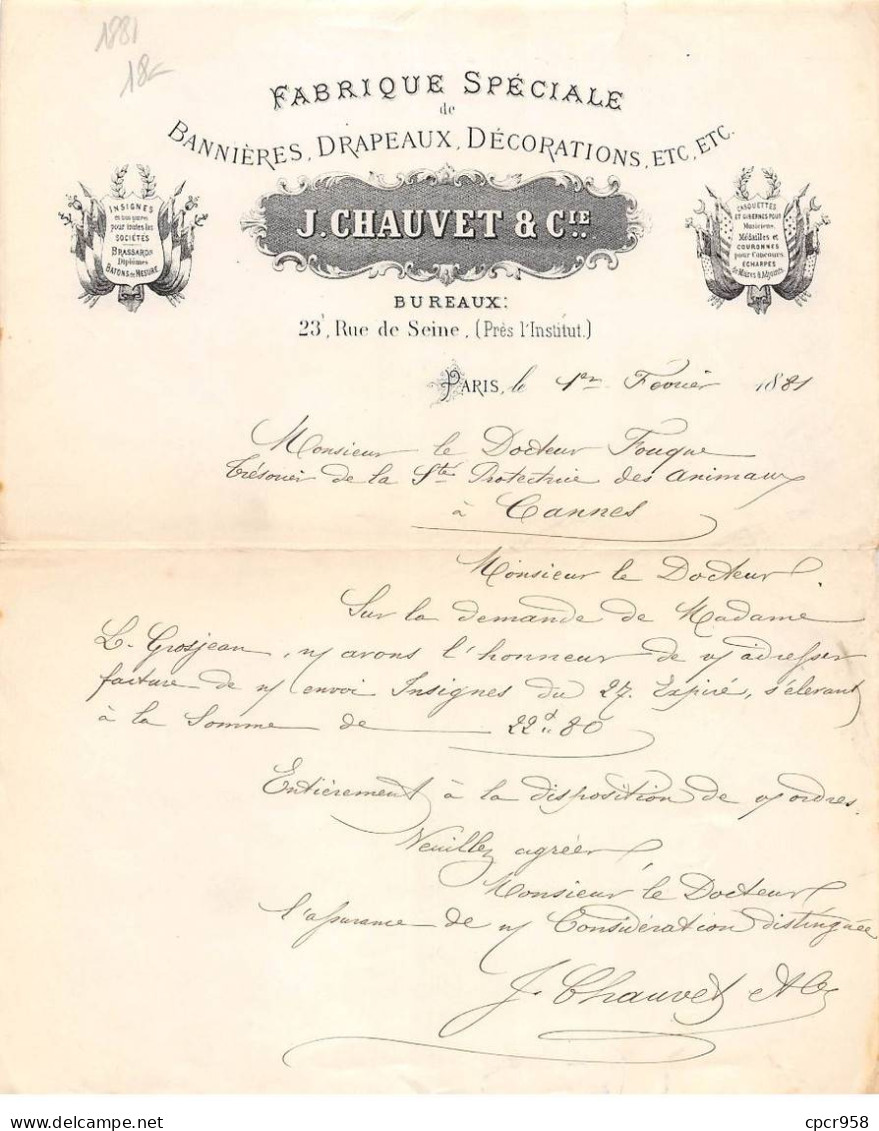 1881
18
FABRIQUE SPÉCIALE
de
BANNIÈRES, DRAPEAUX, DÉCORATIONS, ETC, ETC.
J. CHAUVET & CIE
INSIGNES
pour toutes les
SOCIÉTÉS
BRASSARDS
Diplômes
BATONS DE MESURE
CASQUETTES
ET GIBERNES POUR
Musiciens,
Médailles et
COURONNES
pour Concours
ÉCHARPES
de Maires & Adjoints
BUREAUX:
23, Rue de Seine, (Près l'Institut.)
PARIS, le 1er Février 1881
Monsieur le Docteur Fouque
Trésorier de la Sté Protectrice des animaux
à Cannes
Monsieur le Docteur,
Sur la demande de Madame
L. Grosjean, n/ avons l'honneur de v/ adresser
facture de n/ envoi Insignes du 27. Expiré, s'élevant
à la Somme de 22f. 80
Entièrement à la disposition de v/ ordres.
Veuillez agréer,
Monsieur le Docteur,
l'assurance de n/ Considération distinguée
J. Chauvet & Cie
cpcr958